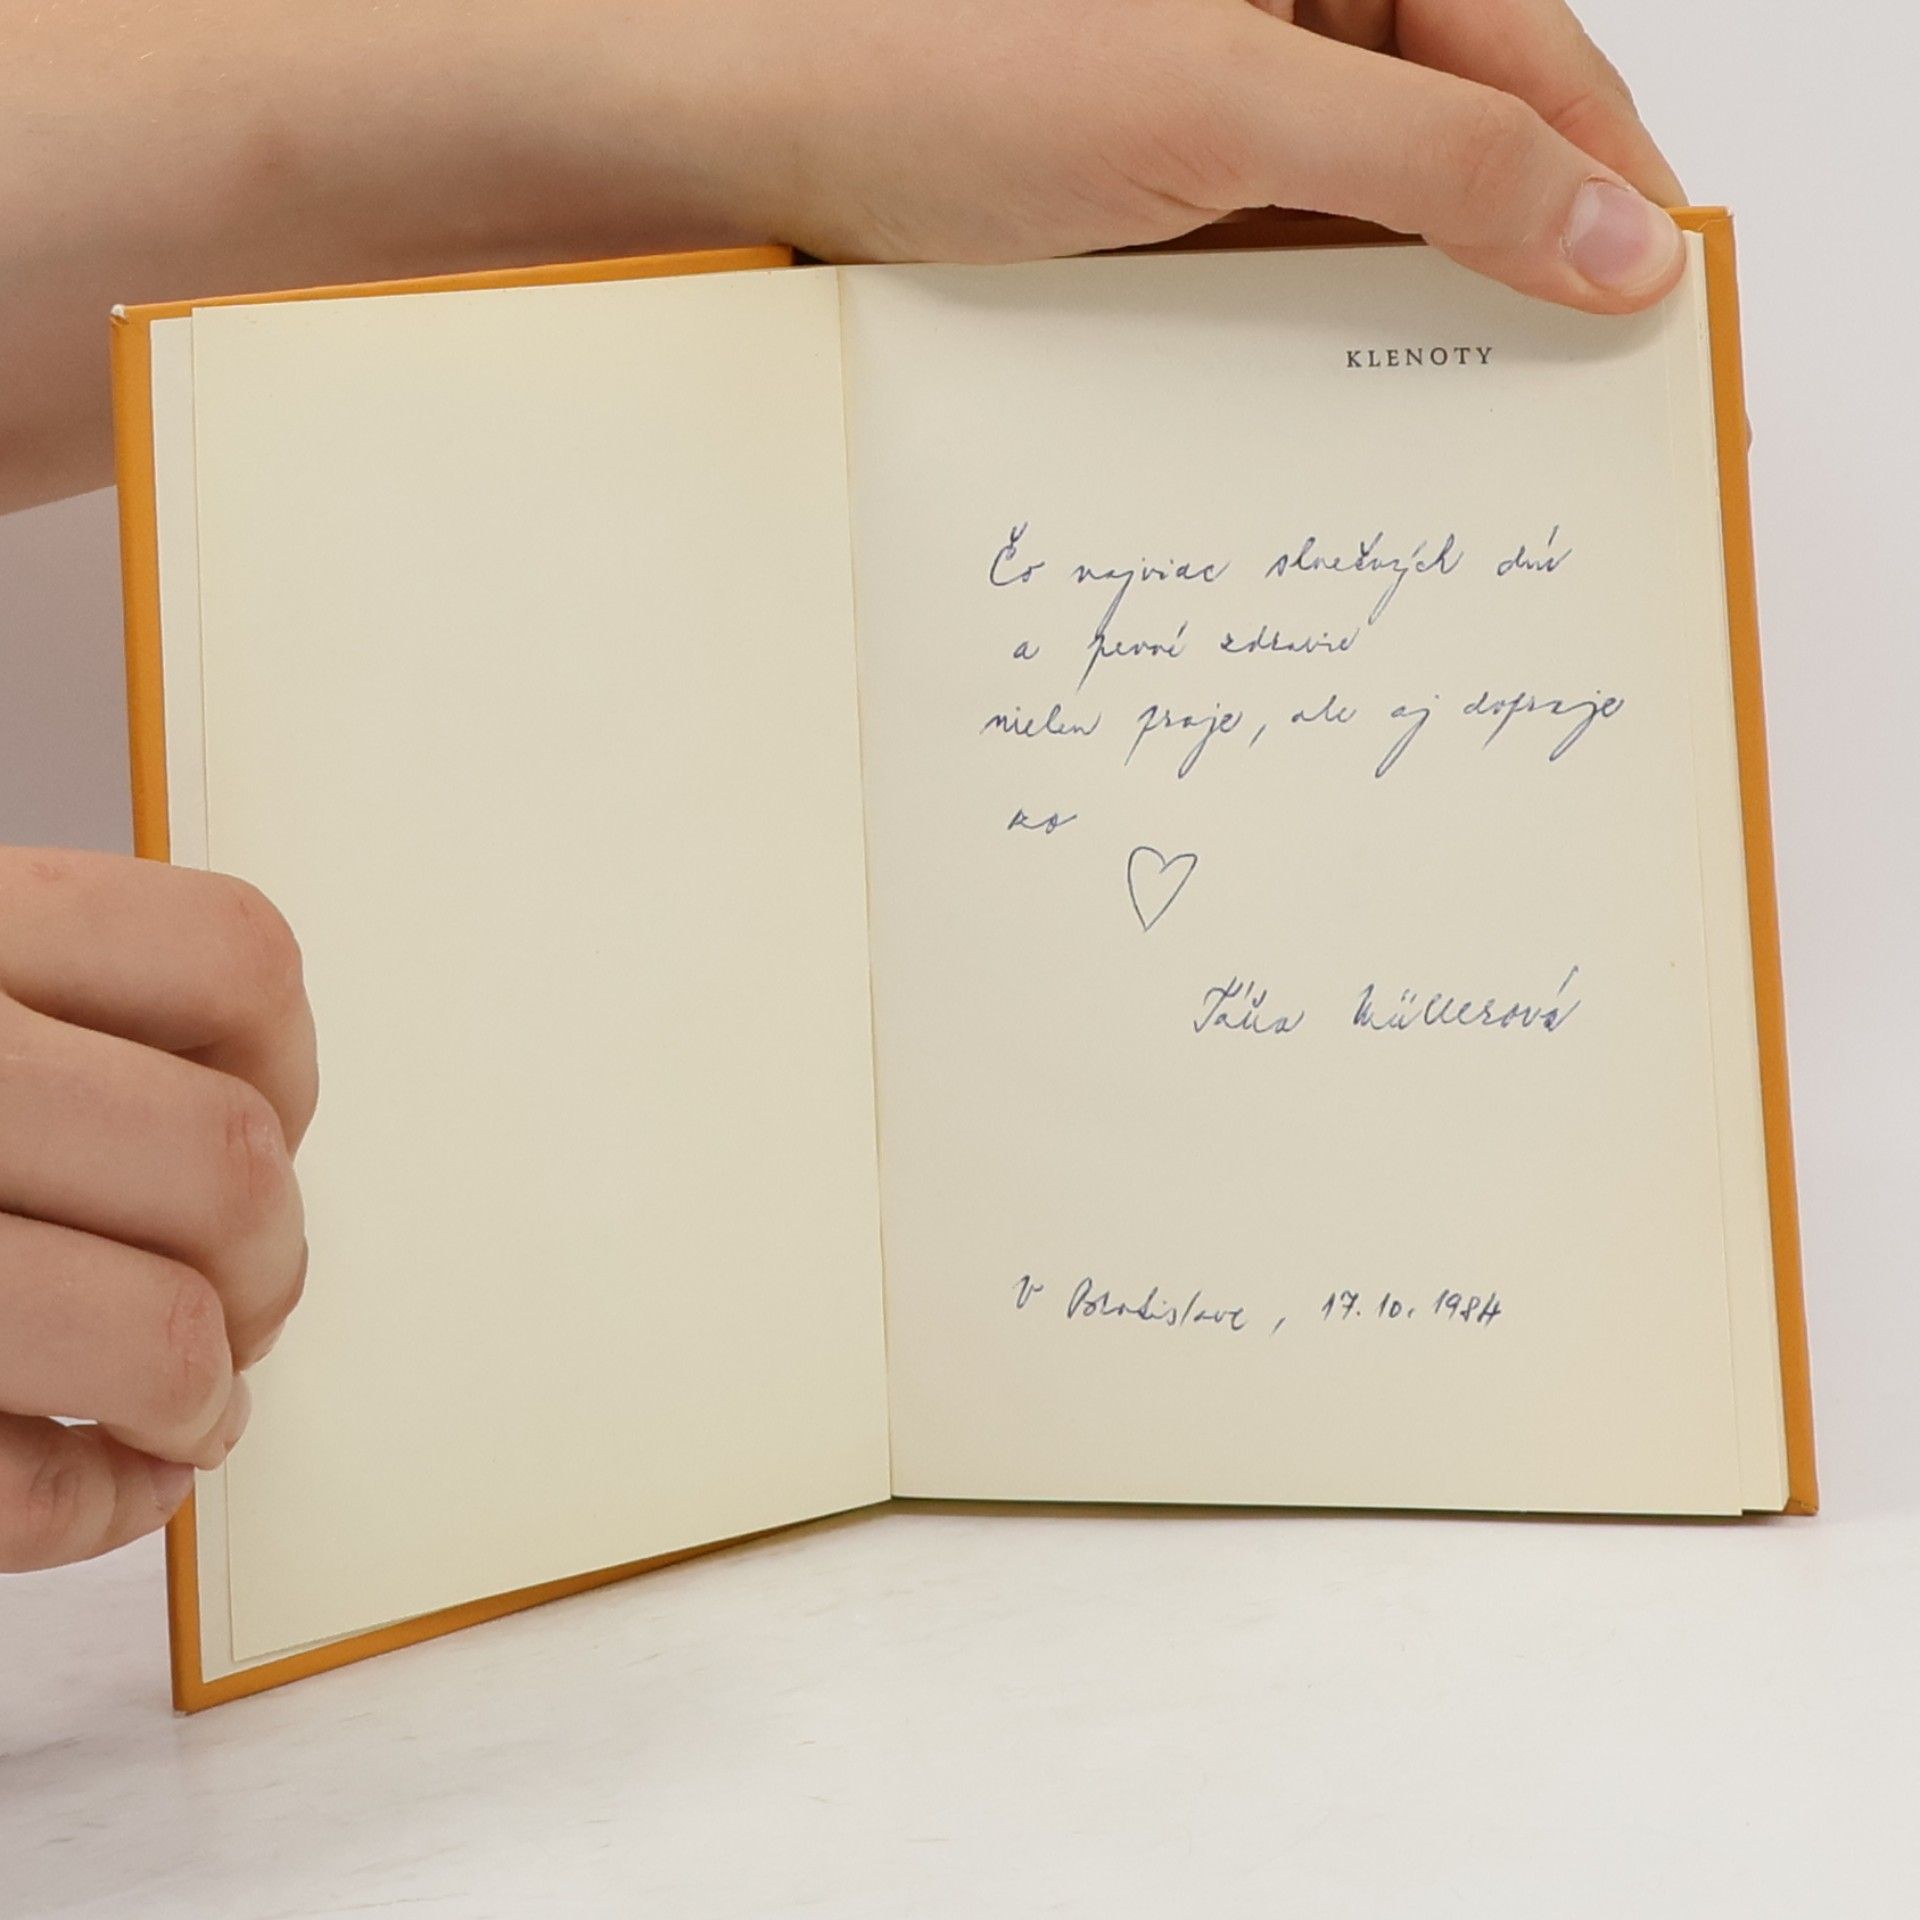 KLENOTY
Čo najviac slnečných dní
a pevné zdravie
nielen praje, ale aj dopraje
zo
Táňa Müllerová
V Bratislave, 17.10.1984